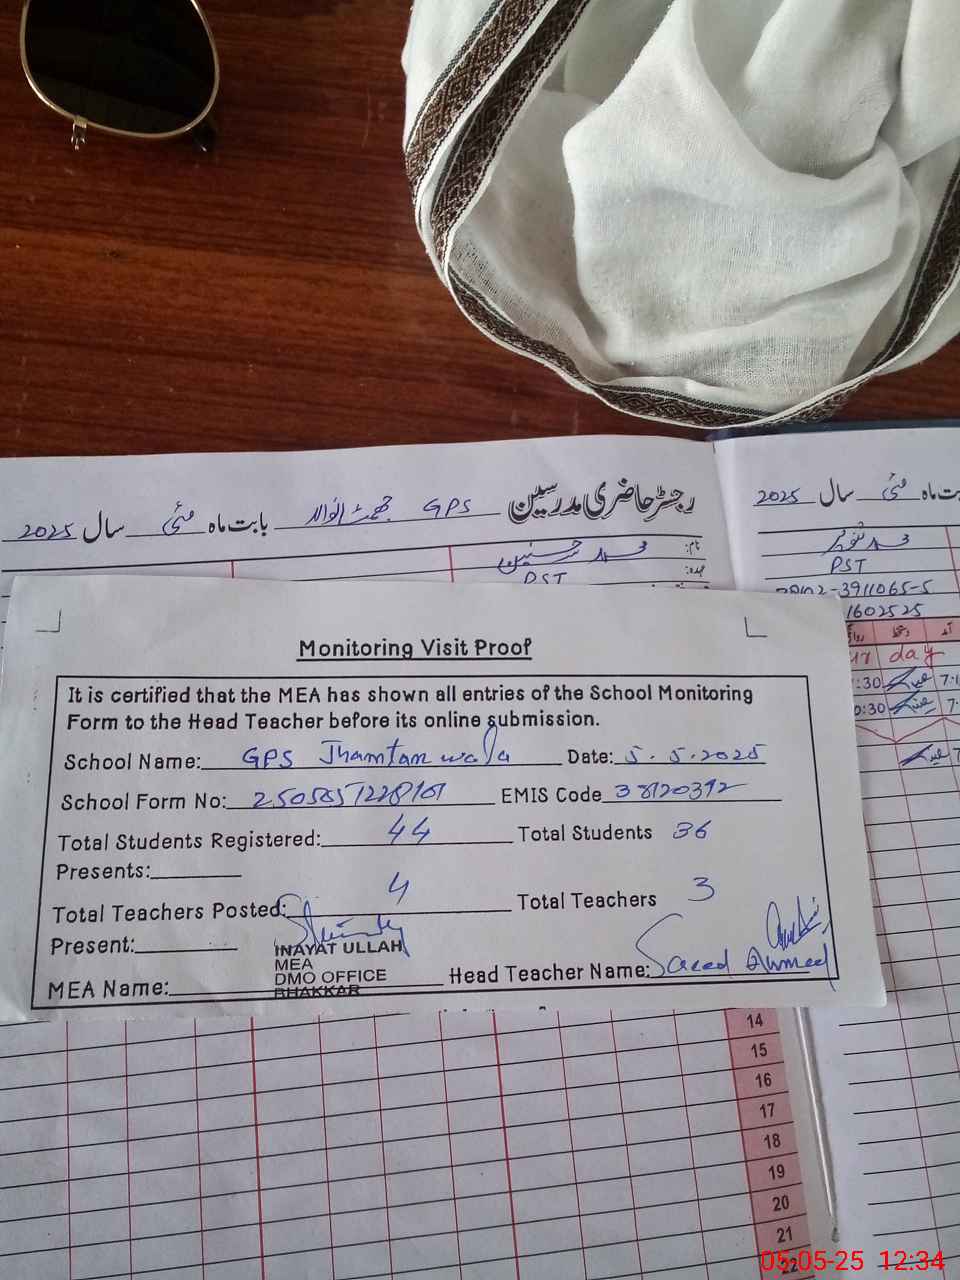 رجسٹر حاضری مدرسین GPS جھمٹانوالہ بابت ماہ مئی سال 2025
نام:
عہدہ:
PST
ماہ مئی سال 2025
محمد تنویر
PST
-3911065-5
1602525
day
:30
0:30
Monitoring Visit Proof
It is certified that the MEA has shown all entries of the School Monitoring
Form to the Head Teacher before its online submission.
School Name: GPS Jhamtanwala Date: 5.5.2025
School Form No: EMIS Code 38120392
Total Students Registered: 44 Total Students 36
Presents:
Total Teachers Posted: 4 Total Teachers 3
Present:
INAYAT ULLAH
MEA
DMO OFFICE
BHAKKAR
MEA Name: Head Teacher Name: Saeed Ahmed
14
15
16
17
18
19
20
21
22
05-05-25 12:34